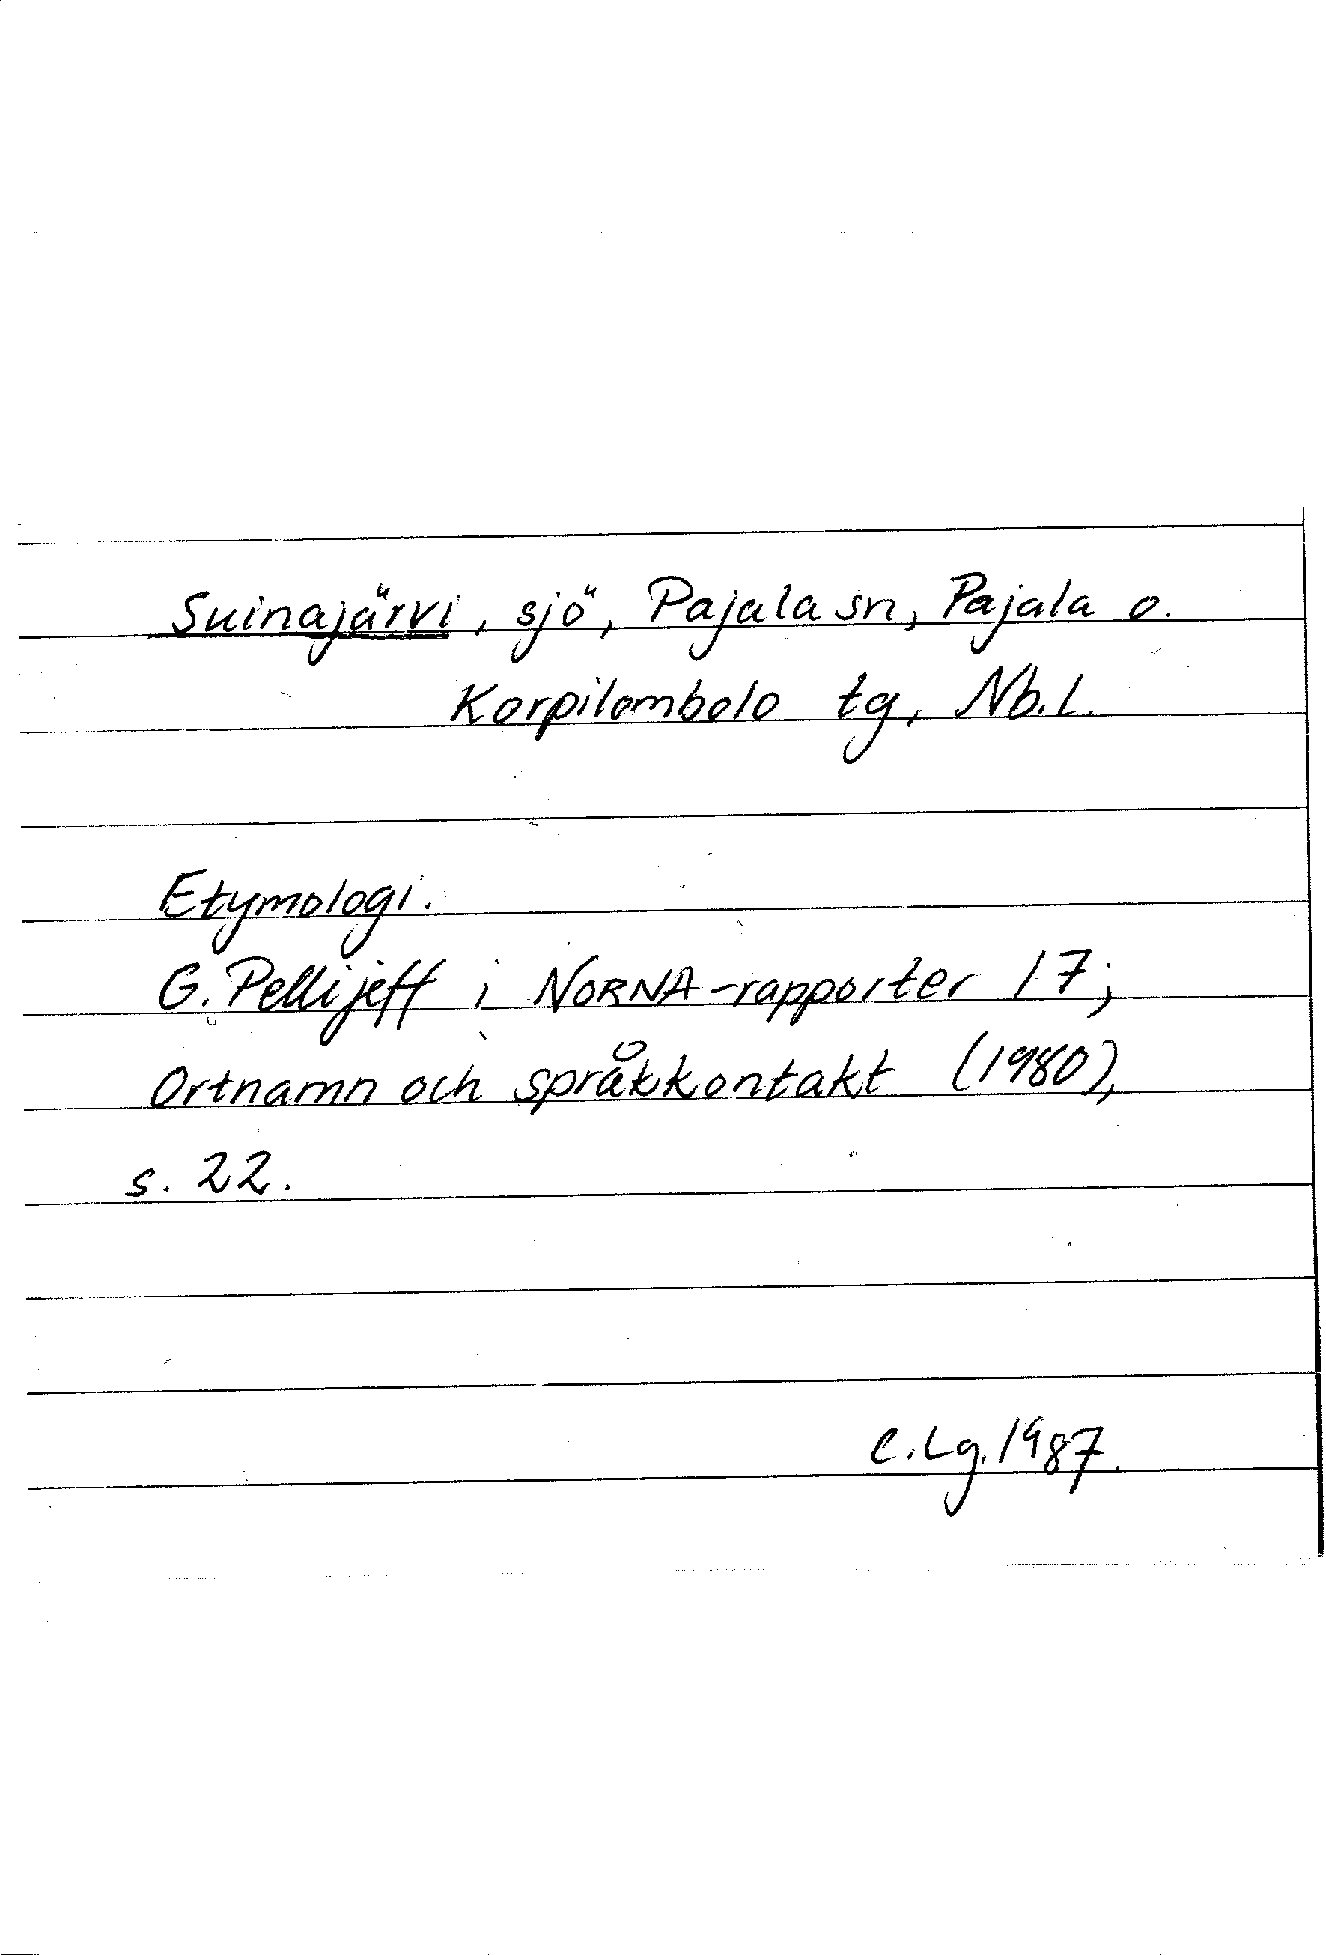 Suinajärvi, sjö, Pajala sn, Pajala o.
Korpilombolo tg, Nb.l.
Etymologi.
G. Pellijeff i NORNA-rapporter 17;
Ortnamn och språkkontakt (1980),
s. 22.
C.Lg. 1987.